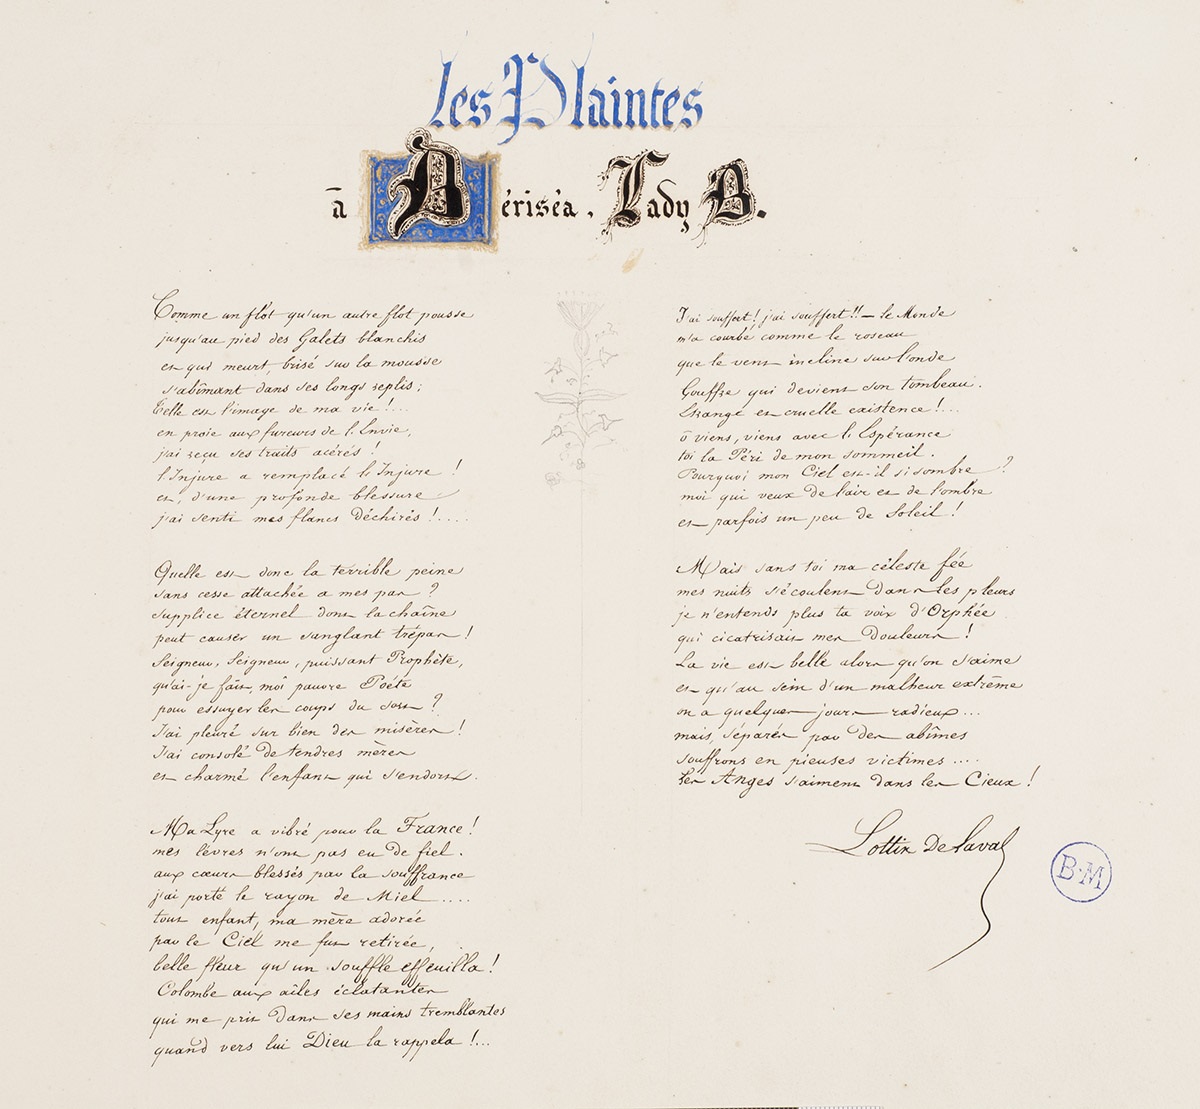 les Plaintes
à Dériséa, Lady B.
Comme un flot qu'un autre flot pousse
jusqu'au pied des Galets blanchis
et qui meurt, brisé sur la mousse
s'abîmant dans ses longs replis;
Telle est l'image de ma vie!...
en proie aux fureurs de l'Envie,
j'ai reçu ses traits acérés!
l'Injure a remplacé l'Injure!
et, d'une profonde blessure
j'ai senti mes flancs Déchirés!.....
Quelle est donc la terrible peine
sans cesse attachée a mes pas?
supplice éternel dont la chaîne
peut causer un sanglant trépas!
Seigneur, Seigneur, puissant Prophète,
qu'ai-je fait, moi pauvre Poéte
pour essuyer les coups du sort?
J'ai pleuré sur bien des misères!
J'ai consolé de tendres mères
et charmé l'enfant qui s'endort.
Ma Lyre a vibré pour la France!
mes lèvres n'ont pas eu de fiel.
aux cœurs blessés par la souffrance
j'ai porté le rayon de Miel.....
tout enfant, ma mère adorée
par le Ciel me fut retirée,
belle fleur qu'un souffle effeuilla!
Colombe aux aîles éclatantes
qui me prit dans ses mains tremblantes
quand vers lui Dieu la rappela!...
J'ai souffert! j'ai souffert!! — le Monde
m'a courbé comme le roseau
que le vent incline sur l'onde
Gouffre qui devient son tombeau.
Etrange et cruelle existence!...
ô viens, viens avec l'Espérance
toi la Péri de mon sommeil.
Pourquoi mon Ciel est-il si sombre?
moi qui veux de l'air et de l'ombre
et parfois un peu de Soleil!
Mais sans toi ma céleste fée
mes nuits s'écoulent dans les pleurs
je n'entends plus ta voix d'Orphée
qui cicatrisait mes Douleurs!
La vie est belle alors qu'on s'aime
et qu'au sein d'un malheur extrême
on a quelques jours radieux...
mais, séparés par des abîmes
souffrons en pieuses victimes....
les Anges s'aiment dans les Cieux!
Lottin De Laval
B·M